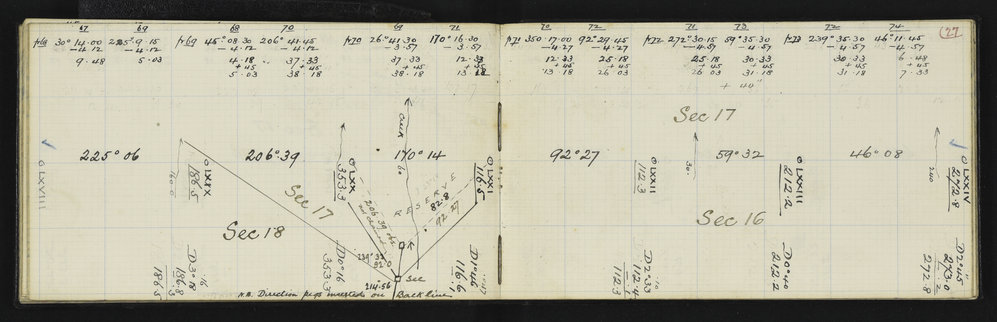 67 69 68 70 69 71 70 72 71 73 72 74
p68 30° 14·00 225° 9·15 p69 45° 08·30 206° 41·45 p70 26° 41·30 170° 16·30 p71 350·17·00 92° 29·45 p72 272° 30·15 59° 35·30 p73 239° 35·30 46° 11·45 (27)
—4·12 —4·12 —4·12 —4·12 —3·57 —3·57 —4·27 —4·27 —4·57 —4·57 —4·57 —4·57
9·48 5·03 4·18 37·33 37·33 12·33 12·33 25·18 25·18 30·33 30·33 6·48
+45 +45 +45 +45 +45 +45 +45 +45
5·03 38·18 38·18 13·18 13·18 26·03 26·03 31·18 31·18 7·33
+ 40"
Sec 17
225° 06 206° 39 170° 14 92° 27 59° 32 46° 08
Creek
60
⊙ LXVIII
160·0
⊙ LXIX
186·5
⊙ LXX
353·3
⊙ LXXI
116·5
⊙ LXXII
112·3
30
⊙ LXXIII
212·2
240
⊙ LXXIV
272·8
Sec 17
RESERVE
82·8
92·27
206·39 obs
not chained
Sec 18
Sec 16
239° 32
92·0
214·56
Sec
D3°18
·16
186·8
·3
186·5
D0°16
353·3
D1°46
·17
116·6
·1
D2°33
·10
112·4
112·3
D0°40
212·2
D2°45
273·0
·2
272·8
N.B. Direction pegs inserted on Back line